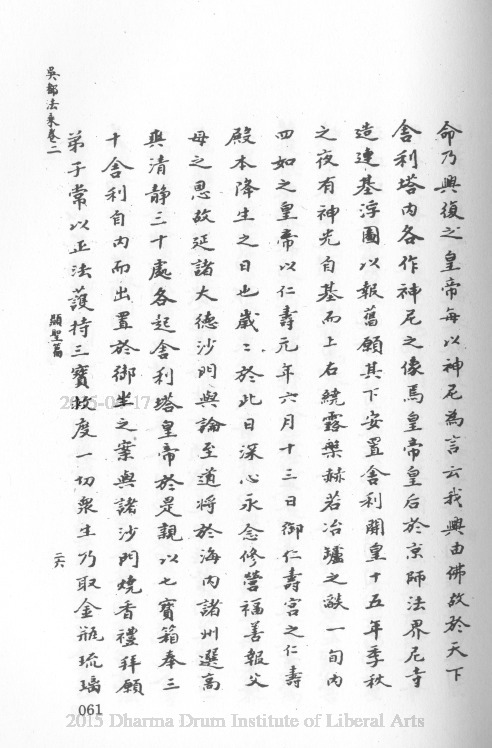 命乃興復之皇帝每以神尼為言云我興由佛故於天下
舍利塔內各作神尼之像焉皇帝皇后於京師法界尼寺
造連基浮圖以報舊願其下安置舍利開皇十五年季秋
之夜有神光自基而上右繞露槃赫若冶罏之燄一旬內
四如之皇帝以仁壽元年六月十三日御仁壽宮之仁壽
殿本降生之日也歲〻於此日深心永念修營福善報父
母之恩故延諸大德沙門與論至道將於海內諸州選高
爽清靜三十處各起舍利塔皇帝於是親以七寶箱奉三
十舍利自內而出置於御坐之案與諸沙門燒香禮拜願
弟子常以正法護持三寶故度一切眾生乃取金瓶琉璃
吳都法乘卷二
顯聖篇
二六
061
2015 Dharma Drum Institute of Liberal Arts